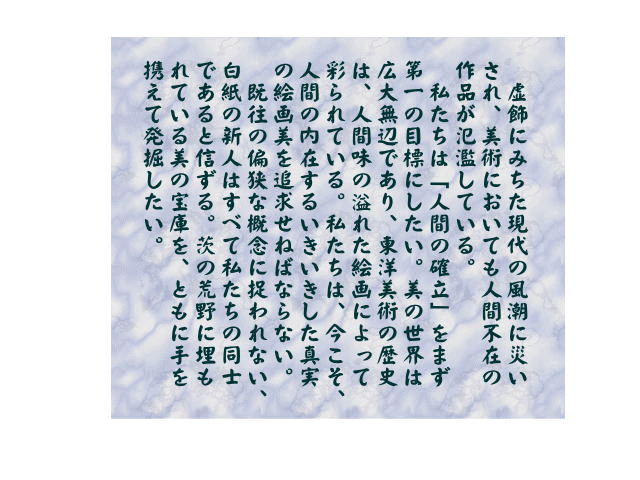 虚飾にみちた現代の風潮に災い
され、美術においても人間不在の
作品が氾濫している。
私たちは「人間の確立」をまず
第一の目標にしたい。美の世界は
広大無辺であり、東洋美術の歴史
は、人間味の溢れた絵画によって
彩られている。私たちは、今こそ、
人間の内在するいきいきした真実
の絵画美を追求せねばならない。
既往の偏狭な概念に捉われない、
白紙の新人はすべて私たちの同士
であると信ずる。茨の荒野に埋も
れている美の宝庫を、ともに手を
携えて発掘したい。